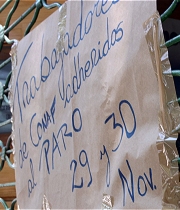 Trabajadores
de CONAF adheridos
al PARO
29 y 30
Nov.